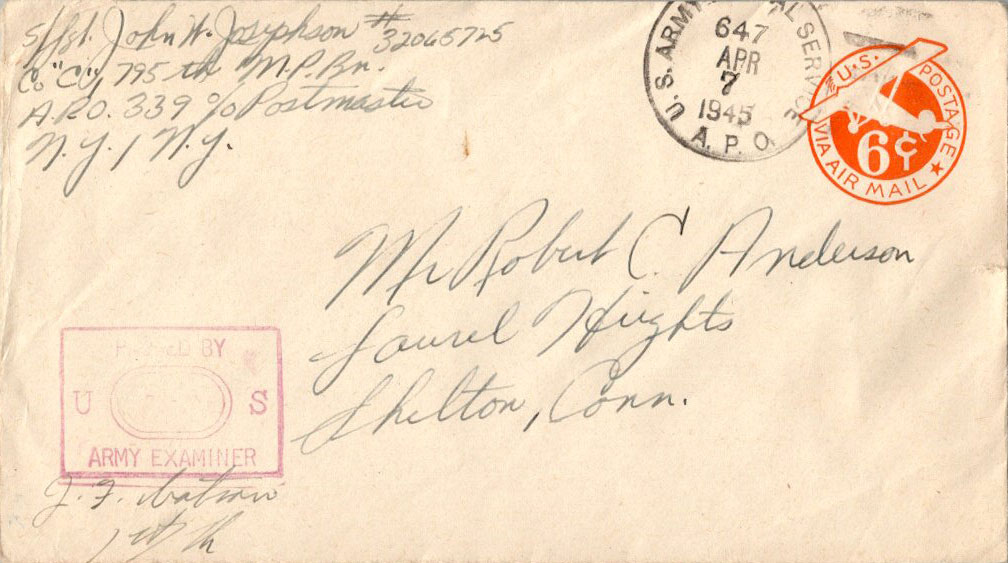 S/Sgt. John W. Josephson # 32065725
Co "C", 795 th M.P. Bn.
A.P.O. 339 c/o Postmaster
N.Y. 1 N.Y.
U.S. ARMY POSTAL SERVICE
647
APR
7
1945
A. P. O.
U.S. POSTAGE
6¢
VIA AIR MAIL
Mr Robert C. Anderson
Laurel Heights
Shelton, Conn.
BY
U S
ARMY EXAMINER
J. F. Watson